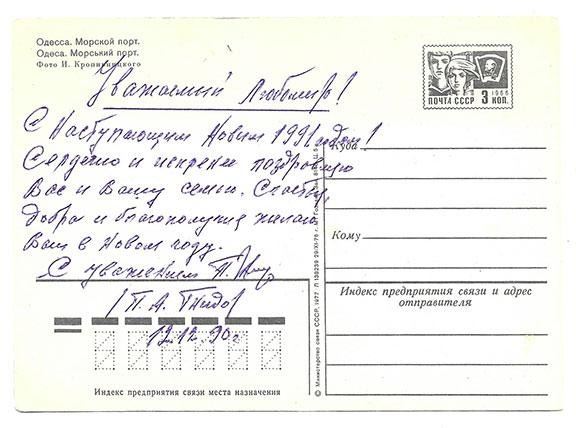 Одесса. Морской порт.
Одеса. Морський порт.
Фото И. Кропивницкого
Уважаемый Любомир!
С Наступающим Новым 1991 годом!
Сердечно и искренне поздравляю
Вас и Вашу семью. Счастья,
добра и благополучия желаю
Вам в Новом году.
С уважением
/П. А. Гнидо
19.12.90г.
1966
ПОЧТА СССР 3 КОП.
Куда
Кому
Индекс предприятия связи и адрес
отправителя
Индекс предприятия связи места назначения
© Министерство связи СССР, 1977.